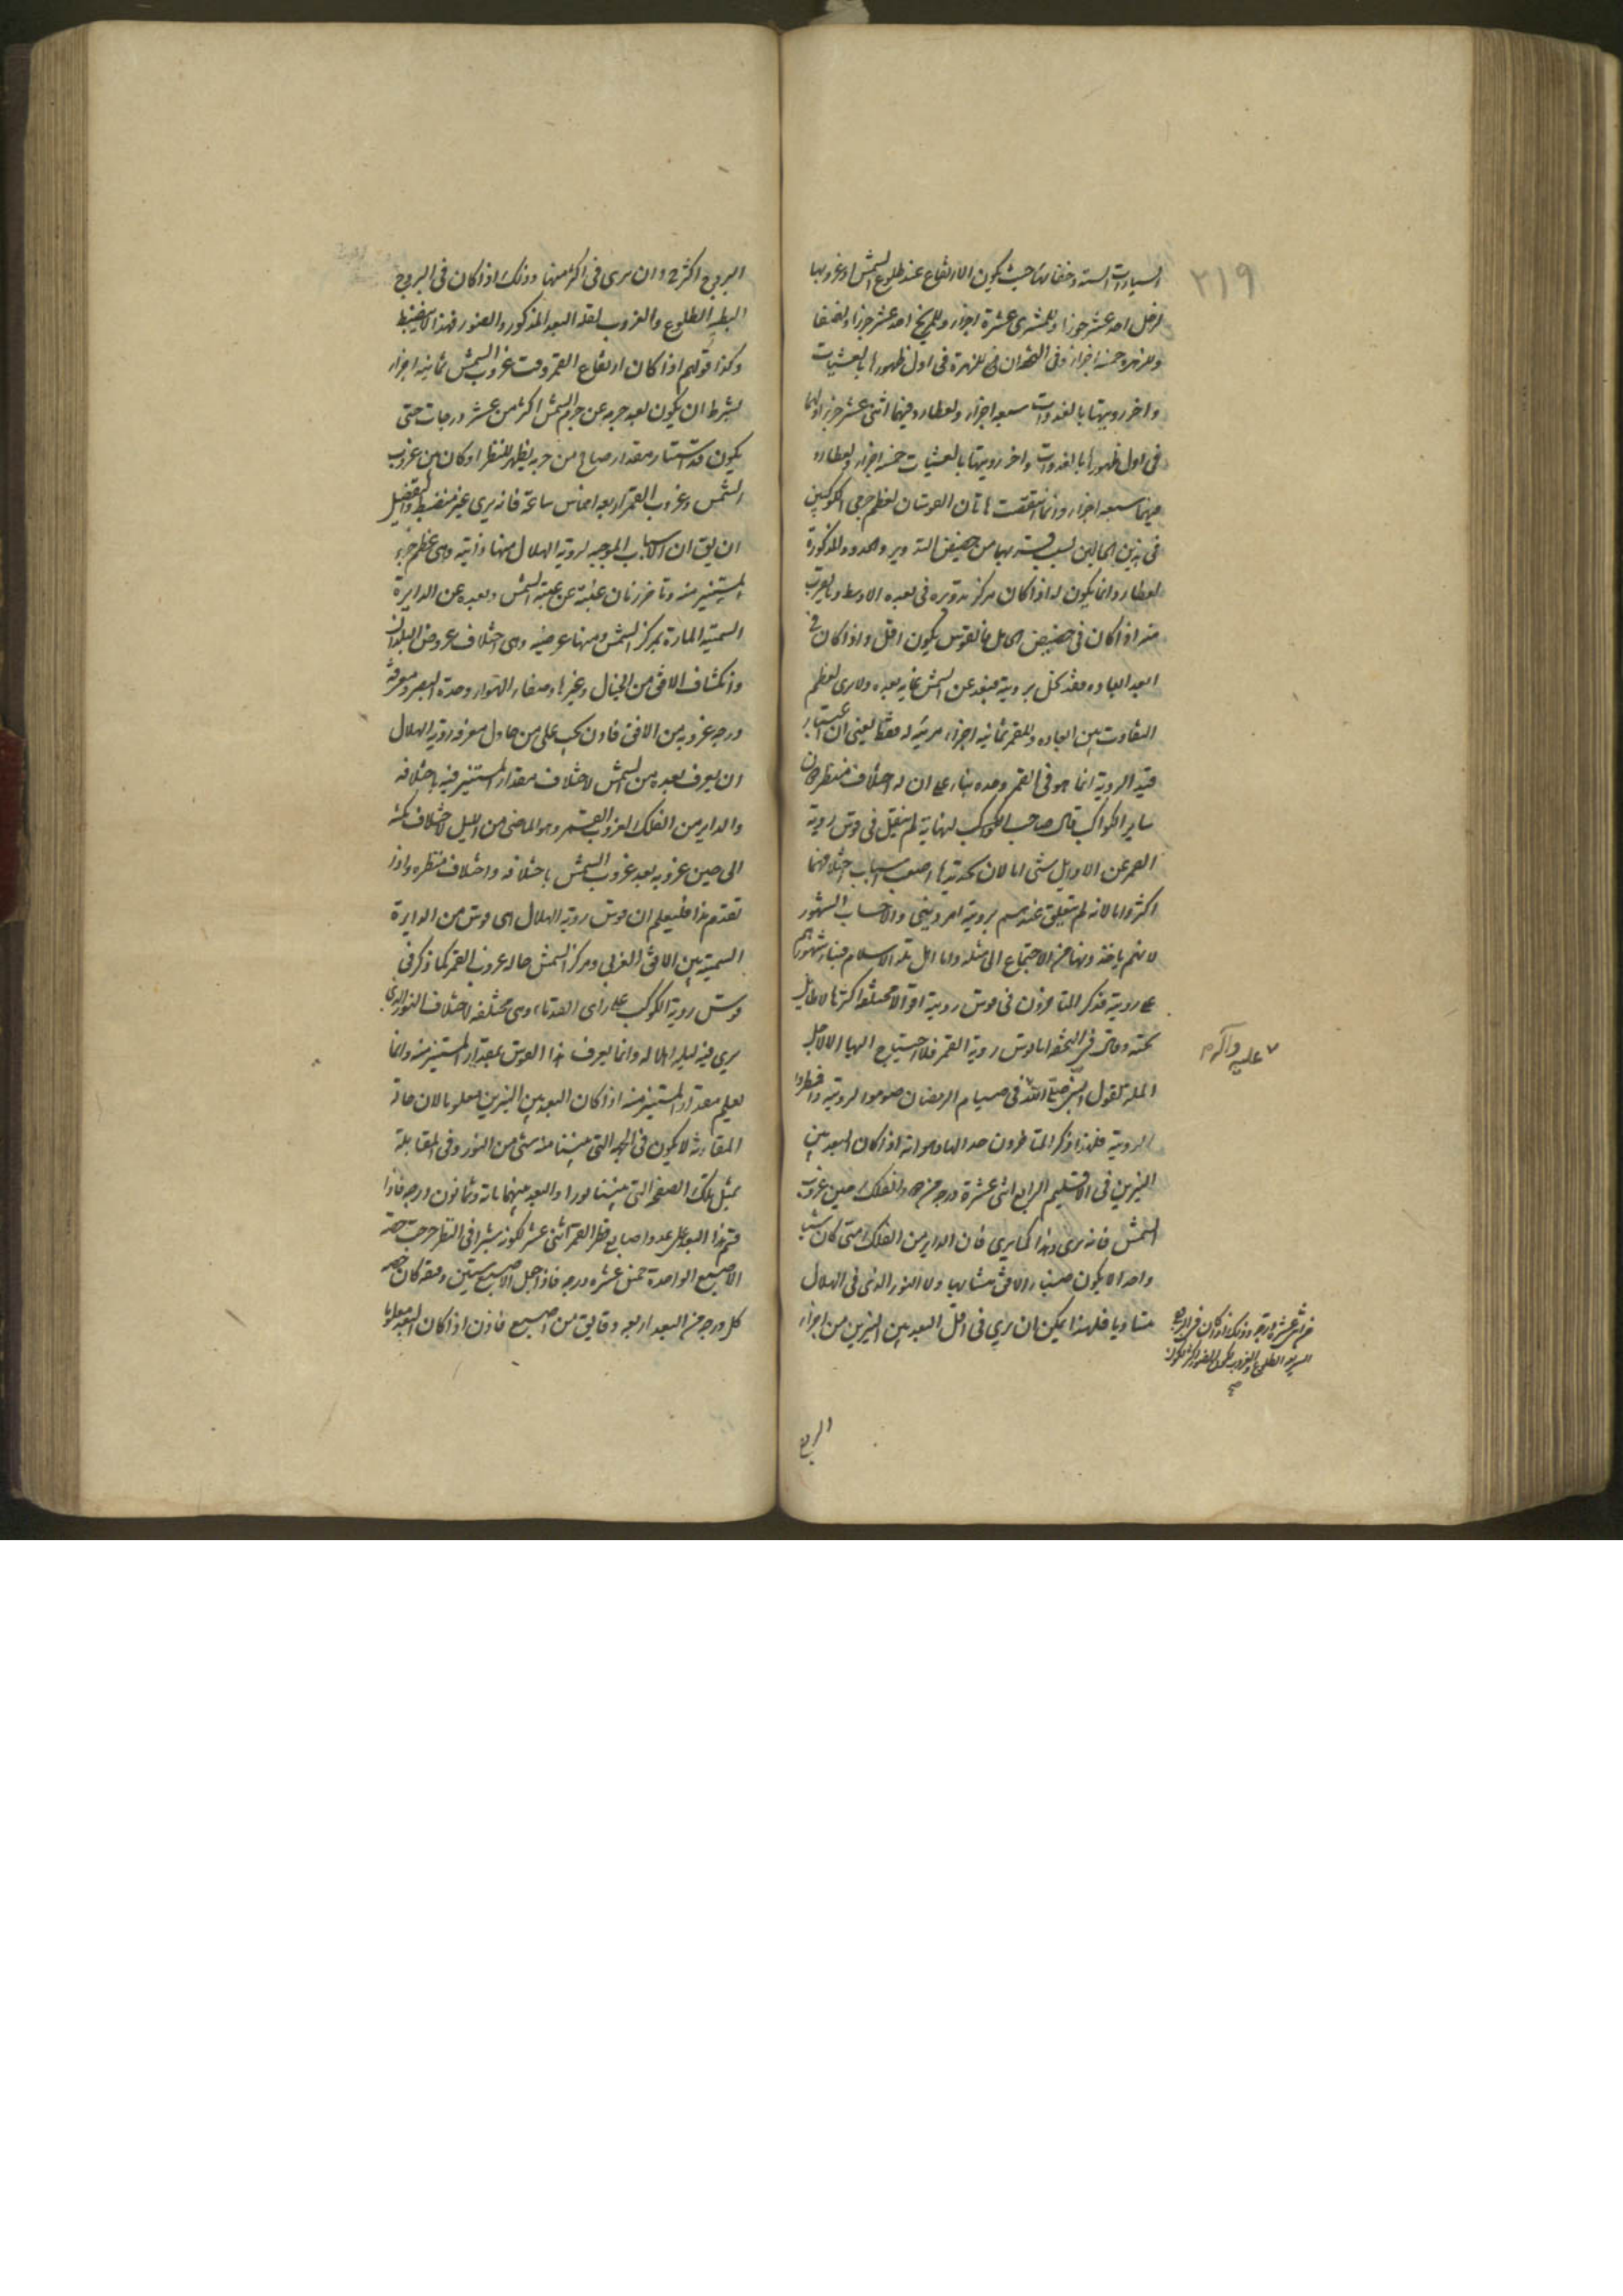 ٢١٩
السيارات الستة وخفائها حيث يكون الارتفاع عند طلوع الشمس او غروبها
لزحل احد عشر جزءا وللمشترى عشرة اجزاء وللمريخ احد عشر جزءا ونصفا
وللزهرة خمسة اجزاء وفى للزهرة فى اول ظهورها بالعشيات
واخر رويتها بالغدوات سبعة اجزاء ولعطارد فيهما اثنى عشر جزءا ولهما
فى اول ظهورها بالغدوات واخر رويتها بالعشيات خمسة اجزاء ولعطارد
فيهما سبعة اجزاء وانما هاتان القوسان لعظم جرمى الكوكبين
فى هذين الحالين بسبب قربهما من حضيض التدوير والحدود المذكورة
لعطارد انما يكون له اذا كان مركز تدويره فى بعده الاوسط وما يقرب
منه اذا كان فى حضيض الحامل فالقوس يكون اقل واذا كان فى
البعد الابعد فقد يخل برويته فيبعد عن الشمس غاية بعده ولا يرى لعظم
التفاوت بين ابعاده وللقمر ثمانية اجزاء مرئية له فقط يعنى ان اعتبار
قيد الروية انما هو فى القمر وحده بناء على ان له اختلاف منظر دون
ساير الكواكب قال صاحب لم ينقل فى قوس روية
القمر عن الاوايل شئ اما لان تحديدها اصعب اسباب اختلافها
اكثر واما لانه لم يتعلق عندهم بروية امر دينى والا حساب الشهور
لانهم ياخذونها من الاجتماع الى مثله واما اهل ملة الاسلام فبناء شهورهم
على روية فذكر المتاخرون فى قوس روية اقوالا مختلفة اكثرها لا طايل
تحته وقال فى التحفة اما قوس روية القمر فلا احتياج اليها الا لاهل
الملة لقول النبى صلى الله فى صيام الرمضان صوموا لرويته وافطروا
عليه وآله وسلم
لرويته فلهذا ذكر المتاخرون حد الها وهو انه اذا كان البعد بين
النيرين فى الاقليم الرابع اثنى عشرة درجة من الفلك حين غروب
الشمس فانه يرى وهذا كما يرى فان الداير من الفلك متى كان شيئا
واحدا لا يكون صفاء الافق متشابها ولا النور الذى فى الهلال
متساويا فلهذا يمكن ان يرى فى اقل البعد بين النيرين من اجزاء
من اثنى عشرة درجة وذلك اذا كان فى البروج
السريعة الطلوع والغروب
صح
الرابع
البروج اكثر وان يرى فى اكثر منها وذلك اذا كان فى البروج
البطية الطلوع والغروب لقلة البعد المذكور والضوء فهذا لا ينضبط
وكذا قولهم اذا كان ارتفاع القمر وقت غروب الشمس ثمانية اجزاء
بشرط ان يكون بعد جرمه عن جرم الشمس اكثر من عشر درجات حتى
يكون قد استنار مقدار صالح من جرمه يظهر للنظر او كان بين غروب
الشمس وغروب القمر اربعة اخماس ساعة فانه يرى غير منضبط والتفصيل
ان يقال ان الاسباب الموجبة لروية الهلال منها ذاتية وهى عظم جزء
المستنير منه وتاخر زمان غيبته عن غيبة الشمس وبعده عن الدايرة
السمتية المارة بمركز الشمس ومنها عرضية وهى اختلاف عروض البلدان
وانكشاف الافق من الجبال وغيرها وصفاء الهواء وحدة البصر ومعرفة
درجة غروبه من الافق فاذن يجب على من حاول معرفة روية الهلال
ان يعرف بعده من الشمس لاختلاف مقدار المستنير فيه باختلافه
والداير من الفلك لغروب القمر وهو الماضى من الليل لاختلاف مكثه
الى حين غروبه بعد غروب الشمس باختلافه واختلاف منظره واذا
تقدم هذا فليعلم ان قوس روية الهلال هى قوس من الدايرة
السمتية بين الافق الغربى ومركز الشمس حالة غروب القمر كما ذكر فى
قوس روية الكواكب على راى القدماء وهى مختلفة لاختلاف النور الذى
يرى فيه ليلة الهلالة وانما يعرف هذا القوس بمقدار المستنير منه وانما
يعلم مقدار المستنير منه اذا كان البعد بين النيرين معلوما لان حالة
المقارنة لا يكون فى الجهة التى تلينا منه شئ من النور وفى المقابلة
يمتلى تلك الصفحة التى تلينا نورا والبعد بينهما ماية وثمانون درجة فاذا
قسم هذا البعد على عدد اصابع قطر القمر اثنى عشر لكونه شبرا فى النظر خرجت حصة
الاصبع الواحدة خمس عشرة درجة فاذا جعل الاصبع ستين دقيقة كان حصة
كل درجة من البعد اربعة دقايق من اصبع فاذن اذا كان البعد معلوما